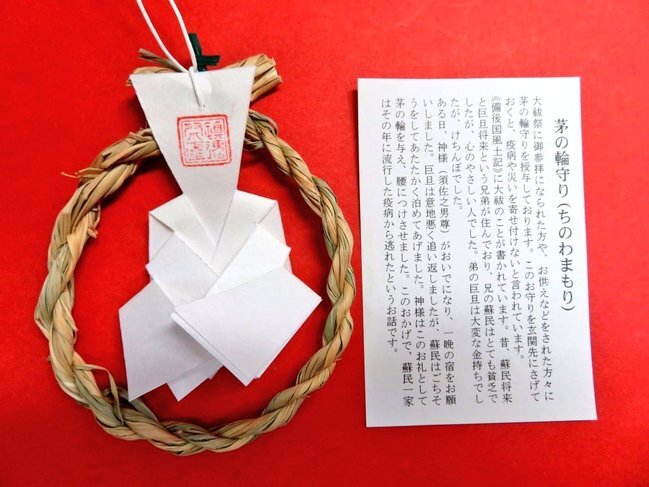 茅の輪守り(ちのわまもり)
大祓祭に御参拝になられた方や、お供えなどをされた方々に
茅の輪守りを授与しております。このお守りを玄関先にさげて
おくと、疫病や災いを寄せ付けないと言われています。
《備後国風土記》に大祓のことが書かれています。昔、蘇民将来
と巨旦将来という兄弟が住んでおり、兄の蘇民はとても貧乏で
したが、心のやさしい人でした。弟の巨旦は大変な金持ちでし
たが、けちんぼでした。
ある日、神様(須佐之男尊)がおいでになり、一晩の宿をお願
いしました。巨旦は意地悪く追い返しましたが、蘇民はごちそ
うをしてあたたかく泊めてあげました。神様はこのお礼として
茅の輪を与え、腰につけさせました。このおかげで、蘇民一家
はその年に流行した疫病から逃れたというお話です。